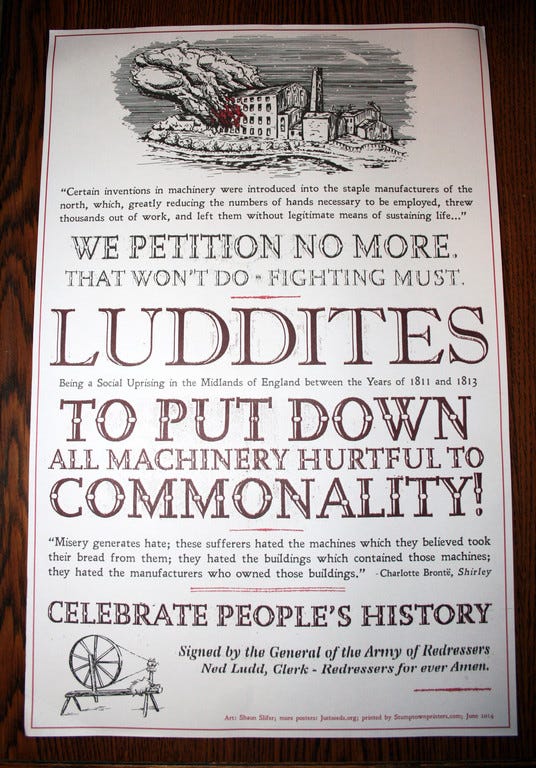 “Certain inventions in machinery were introduced into the staple manufacturers of the
north, which, greatly reducing the numbers of hands necessary to be employed, threw
thousands out of work, and left them without legitimate means of sustaining life...”
WE PETITION NO MORE.
THAT WON'T DO - FIGHTING MUST.
LUDDITES
Being a Social Uprising in the Midlands of England between the Years of 1811 and 1813
TO PUT DOWN
ALL MACHINERY HURTFUL TO
COMMONALITY!
“Misery generates hate; these sufferers hated the machines which they believed took
their bread from them; they hated the buildings which contained those machines;
they hated the manufacturers who owned those buildings.” -Charlotte Brontë, Shirley
CELEBRATE PEOPLE'S HISTORY
Signed by the General of the Army of Redressers
Ned Ludd, Clerk - Redressers for ever Amen.
Art: Shaun Slifer; more posters: Justseeds.org; printed by Stumptownprinters.com; June 2014